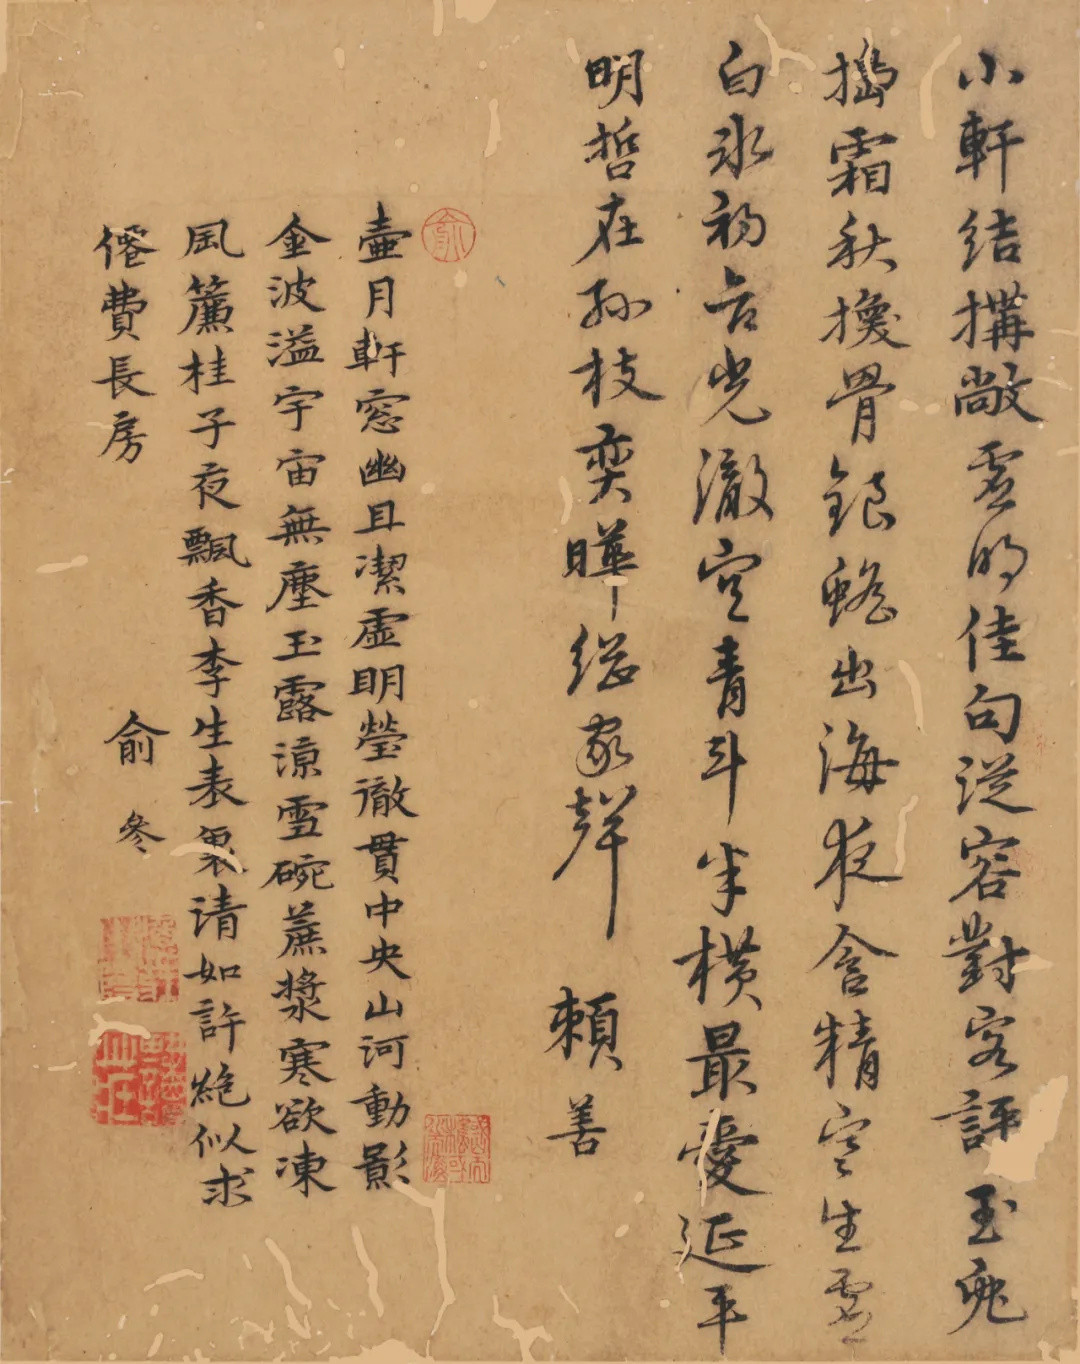 小軒結搆敞虛明佳句從容對客評玉兔
搗霜秋換骨銀蟾出海夜含精寒生虛
白氷初合光徹空青斗半横最愛延平
明哲在孫枝奕曄繼家聲 賴善
壷月軒窓幽且潔虛明瑩徹貫中央山河動影
金波溢宇宙無塵玉露涼雪碗蔗漿寒欲凍
風簾桂子夜飄香李生表裏清如許絶似求
僊費長房 俞參
俞